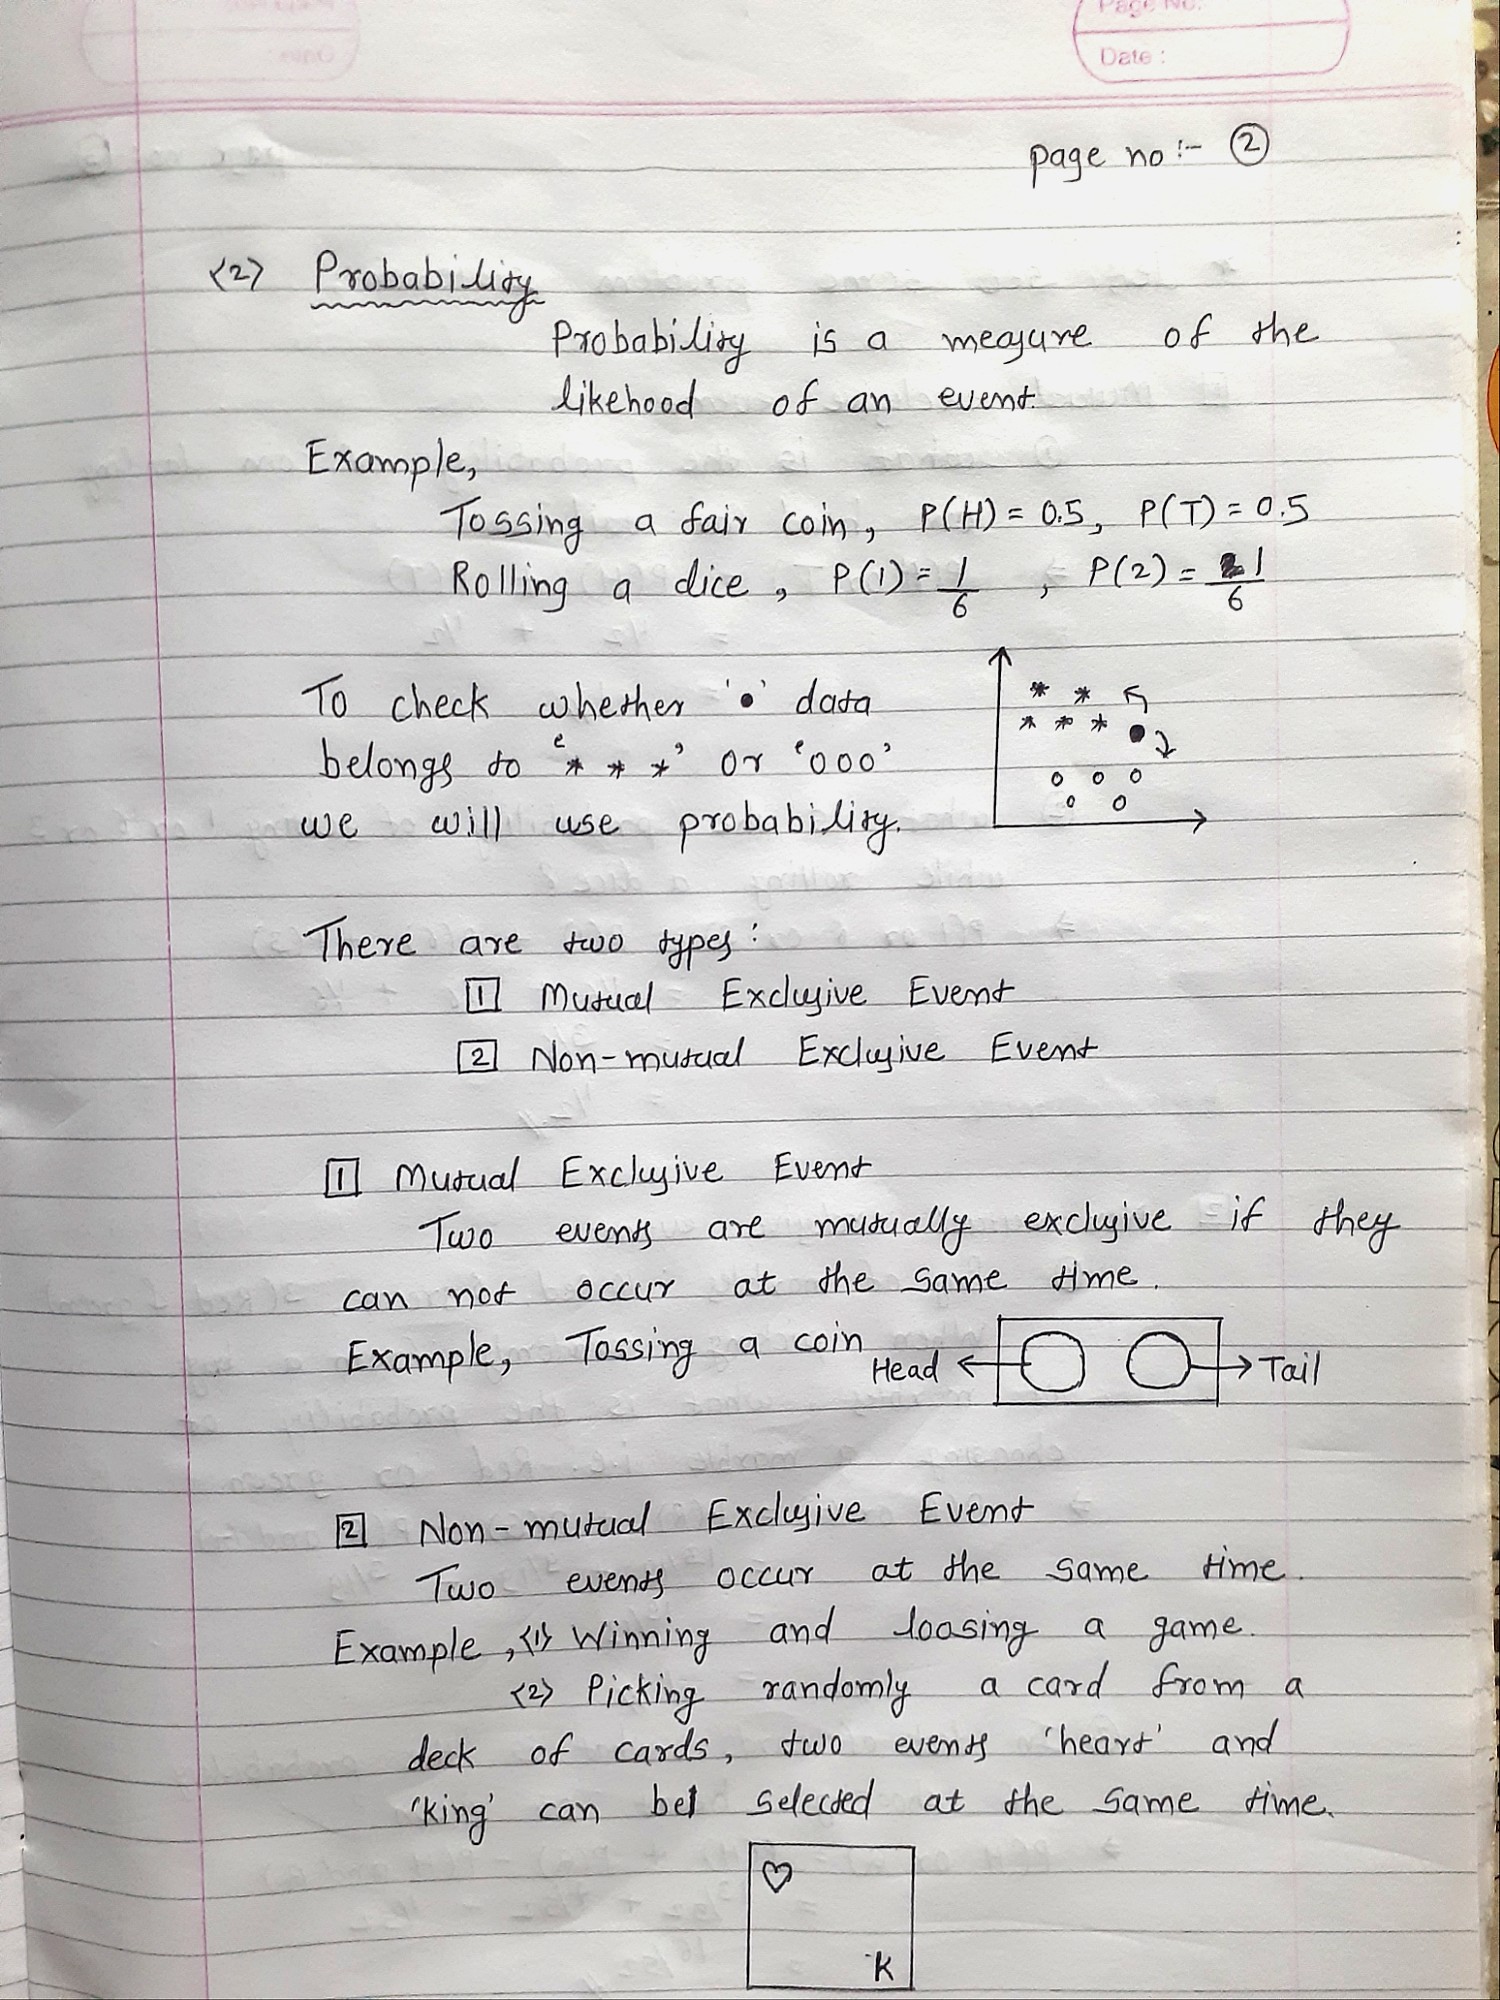 Page No.
Date :
page no :- ②
<2> Probability
Probability is a measure of the
likehood of an event.
Example,
Tossing a fair coin, P(H) = 0.5, P(T) = 0.5
Rolling a dice, P(1) = 1/6 , P(2) = 1/6
To check whether '●' data
belongs to '* * *' or '000'
we will use probability.
There are two types:
1 Mutual Exclusive Event
2 Non-mutual Exclusive Event
1 Mutual Exclusive Event
Two events are mutually exclusive if they
can not occur at the same time.
Example, Tossing a coin
Head
Tail
2 Non-mutual Exclusive Event
Two events occur at the same time.
Example, <1> Winning and loosing a game.
<2> Picking randomly a card from a
deck of cards, two events 'heart' and
'king' can be selected at the same time.
♡
K